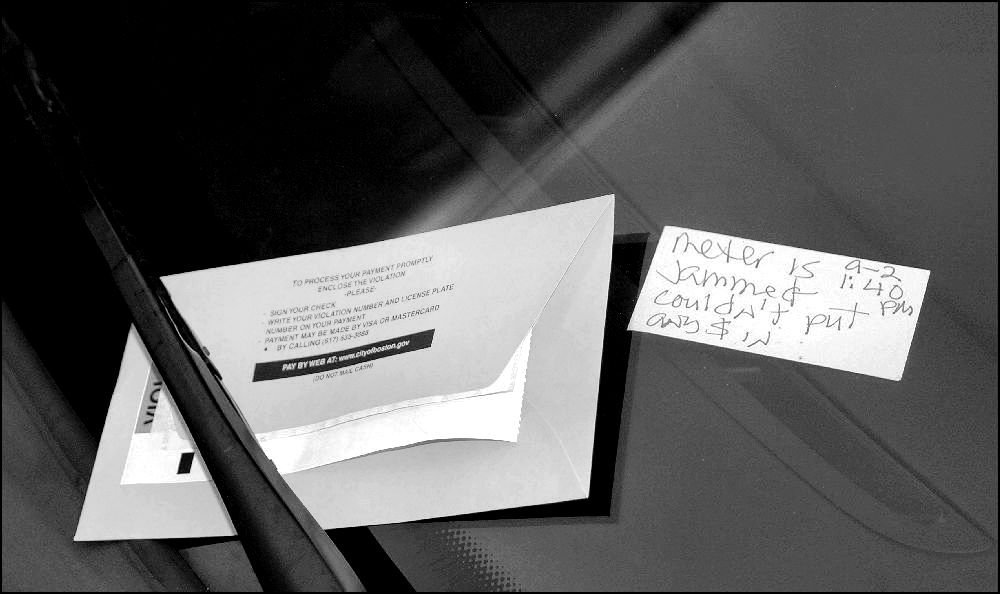 TO PROCESS YOUR PAYMENT PROMPTLY
ENCLOSE THE VIOLATION
-PLEASE-
- SIGN YOUR CHECK
- WRITE YOUR VIOLATION NUMBER AND LICENSE PLATE
NUMBER ON YOUR PAYMENT
- PAYMENT MAY BE MADE BY VISA OR MASTERCARD
• BY CALLING (617) 635-3888
PAY BY WEB AT: www.cityofboston.gov
(DO NOT MAIL CASH)
VIOL
meter is 9-2
Jammed 1:40 pm
couldn't put
any $ in